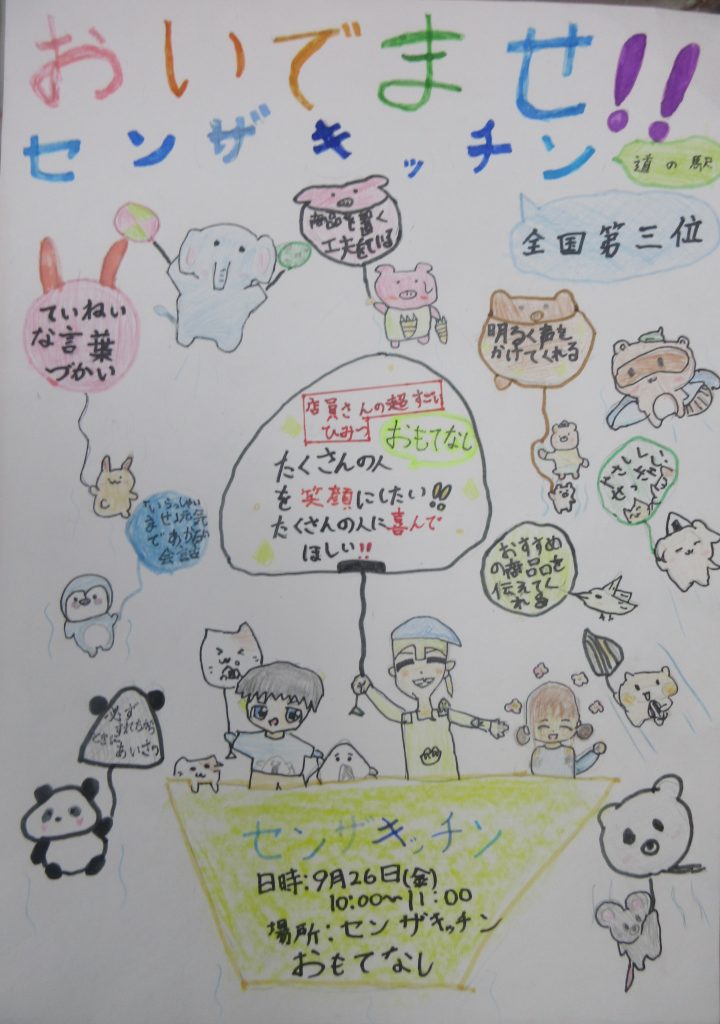 おいでませ!!
センザキッチン
道の駅
全国第三位
商品を置く
工夫
ていねい
な言葉
づかい
明るく声を
かけてくれる
店員さんの超すごい
ひみつ
おもてなし
たくさんの人
を笑顔にしたい!!
たくさんの人に喜んで
ほしい!!
おすすめ
の商品を
伝えてく
れる
いらっしゃい
必ず
あいさつ
センザキッチン
日時:9月26日(金)
10:00～11:00
場所:センザキッチン
おもてなし